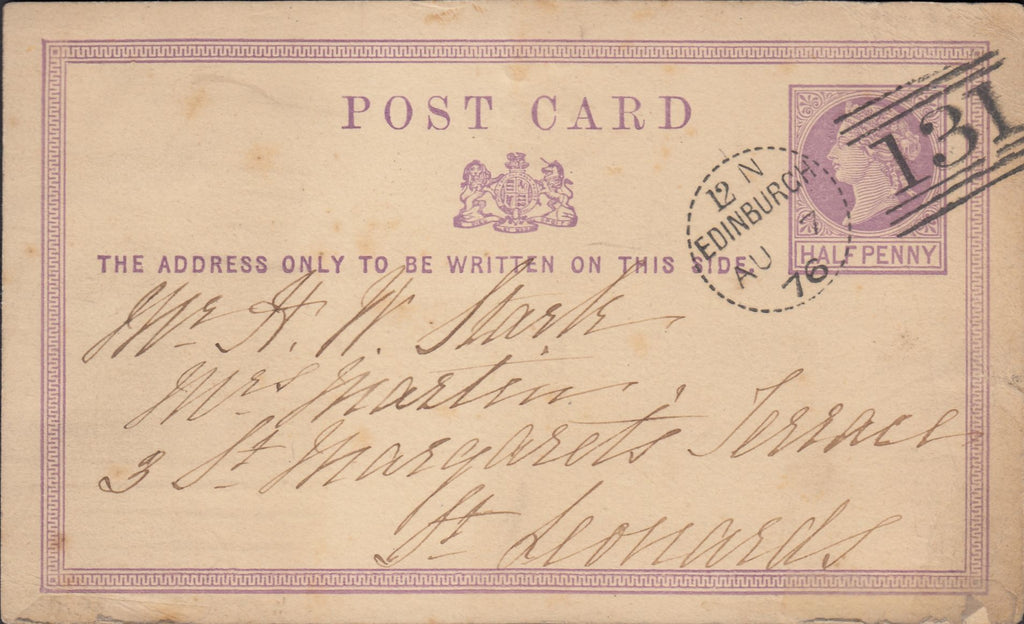 POST CARD
THE ADDRESS ONLY TO BE WRITTEN ON THIS SIDE
HALFPENNY
131
12 N
EDINBURGH
AU 7
76
Mr H. W. Stark
Mrs Martin
3 St Margarets Terrace
St Leonards